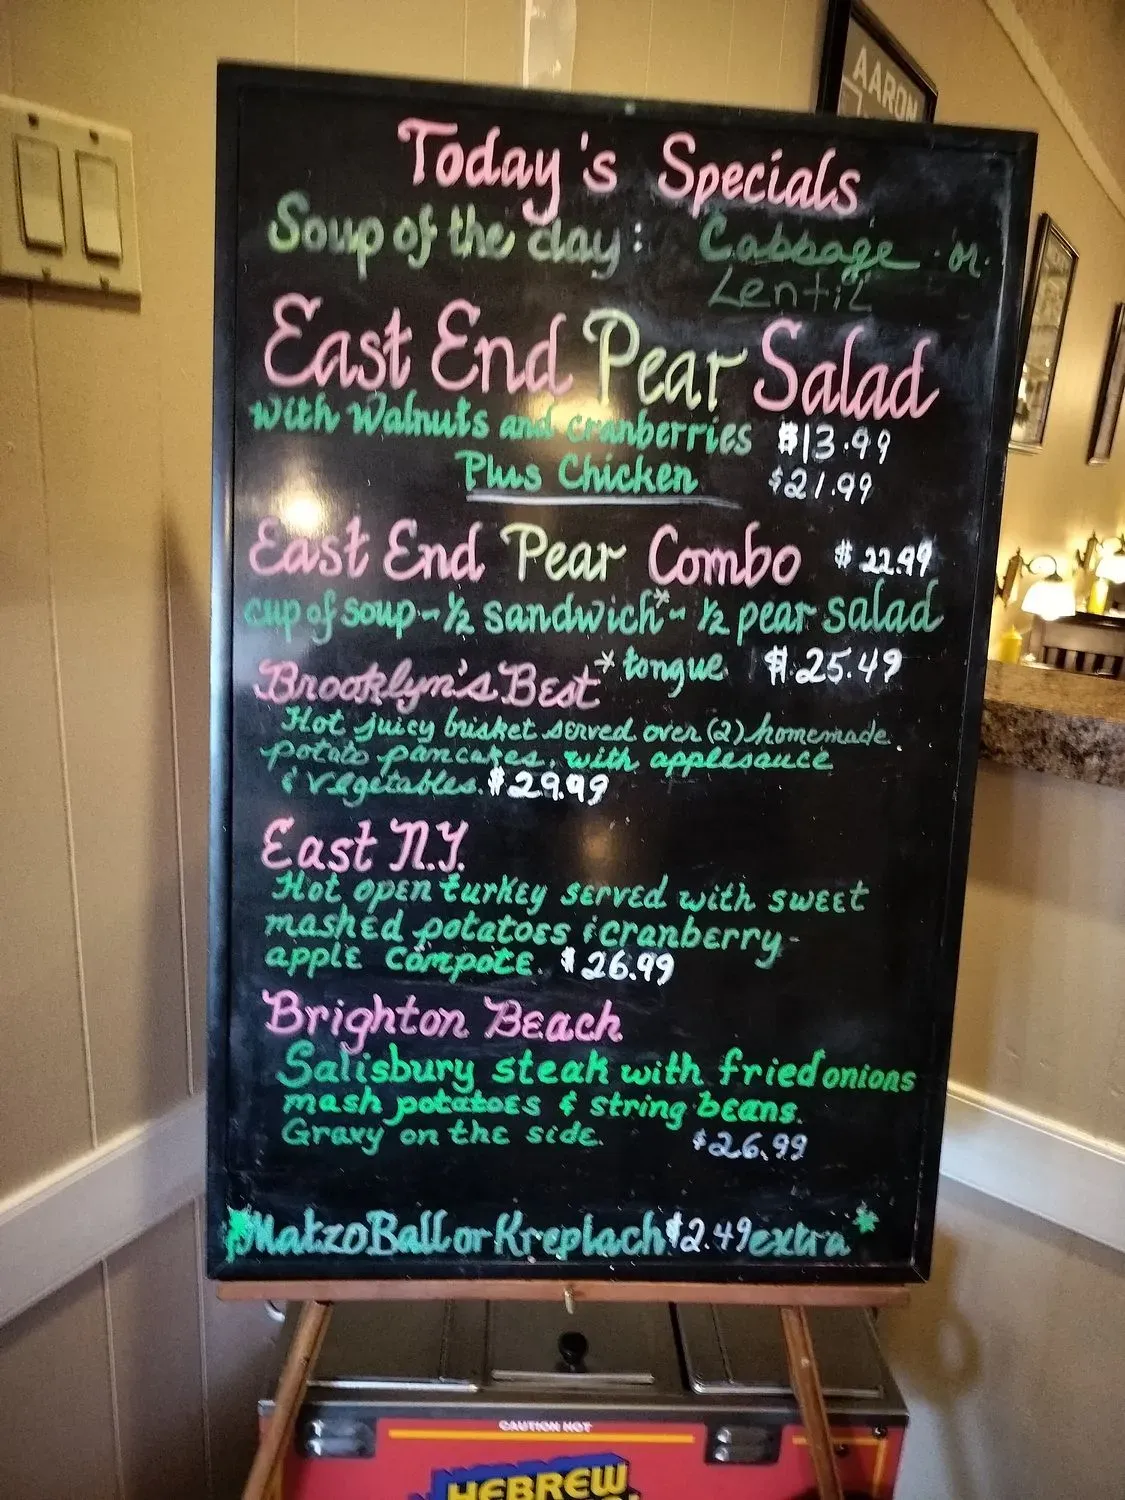 AARON
Today's Specials
Soup of the day: Cabbage or
Lentil
East End Pear Salad
with walnuts and cranberries $13.99
Plus Chicken $21.99
East End Pear Combo $22.99
cup of soup - ½ sandwich* - ½ pear salad
* tongue $25.49
Brooklyn's Best
Hot juicy brisket served over (2) homemade
potato pancakes, with applesauce
& vegetables. $29.99
East N.Y.
Hot open turkey served with sweet
mashed potatoes & cranberry-
apple compote. $26.99
Brighton Beach
Salisbury steak with fried onions
mash potatoes & string beans.
Gravy on the side. $26.99
*Matzo Ball or Kreplach $2.49 extra*
CAUTION HOT
HEBREW